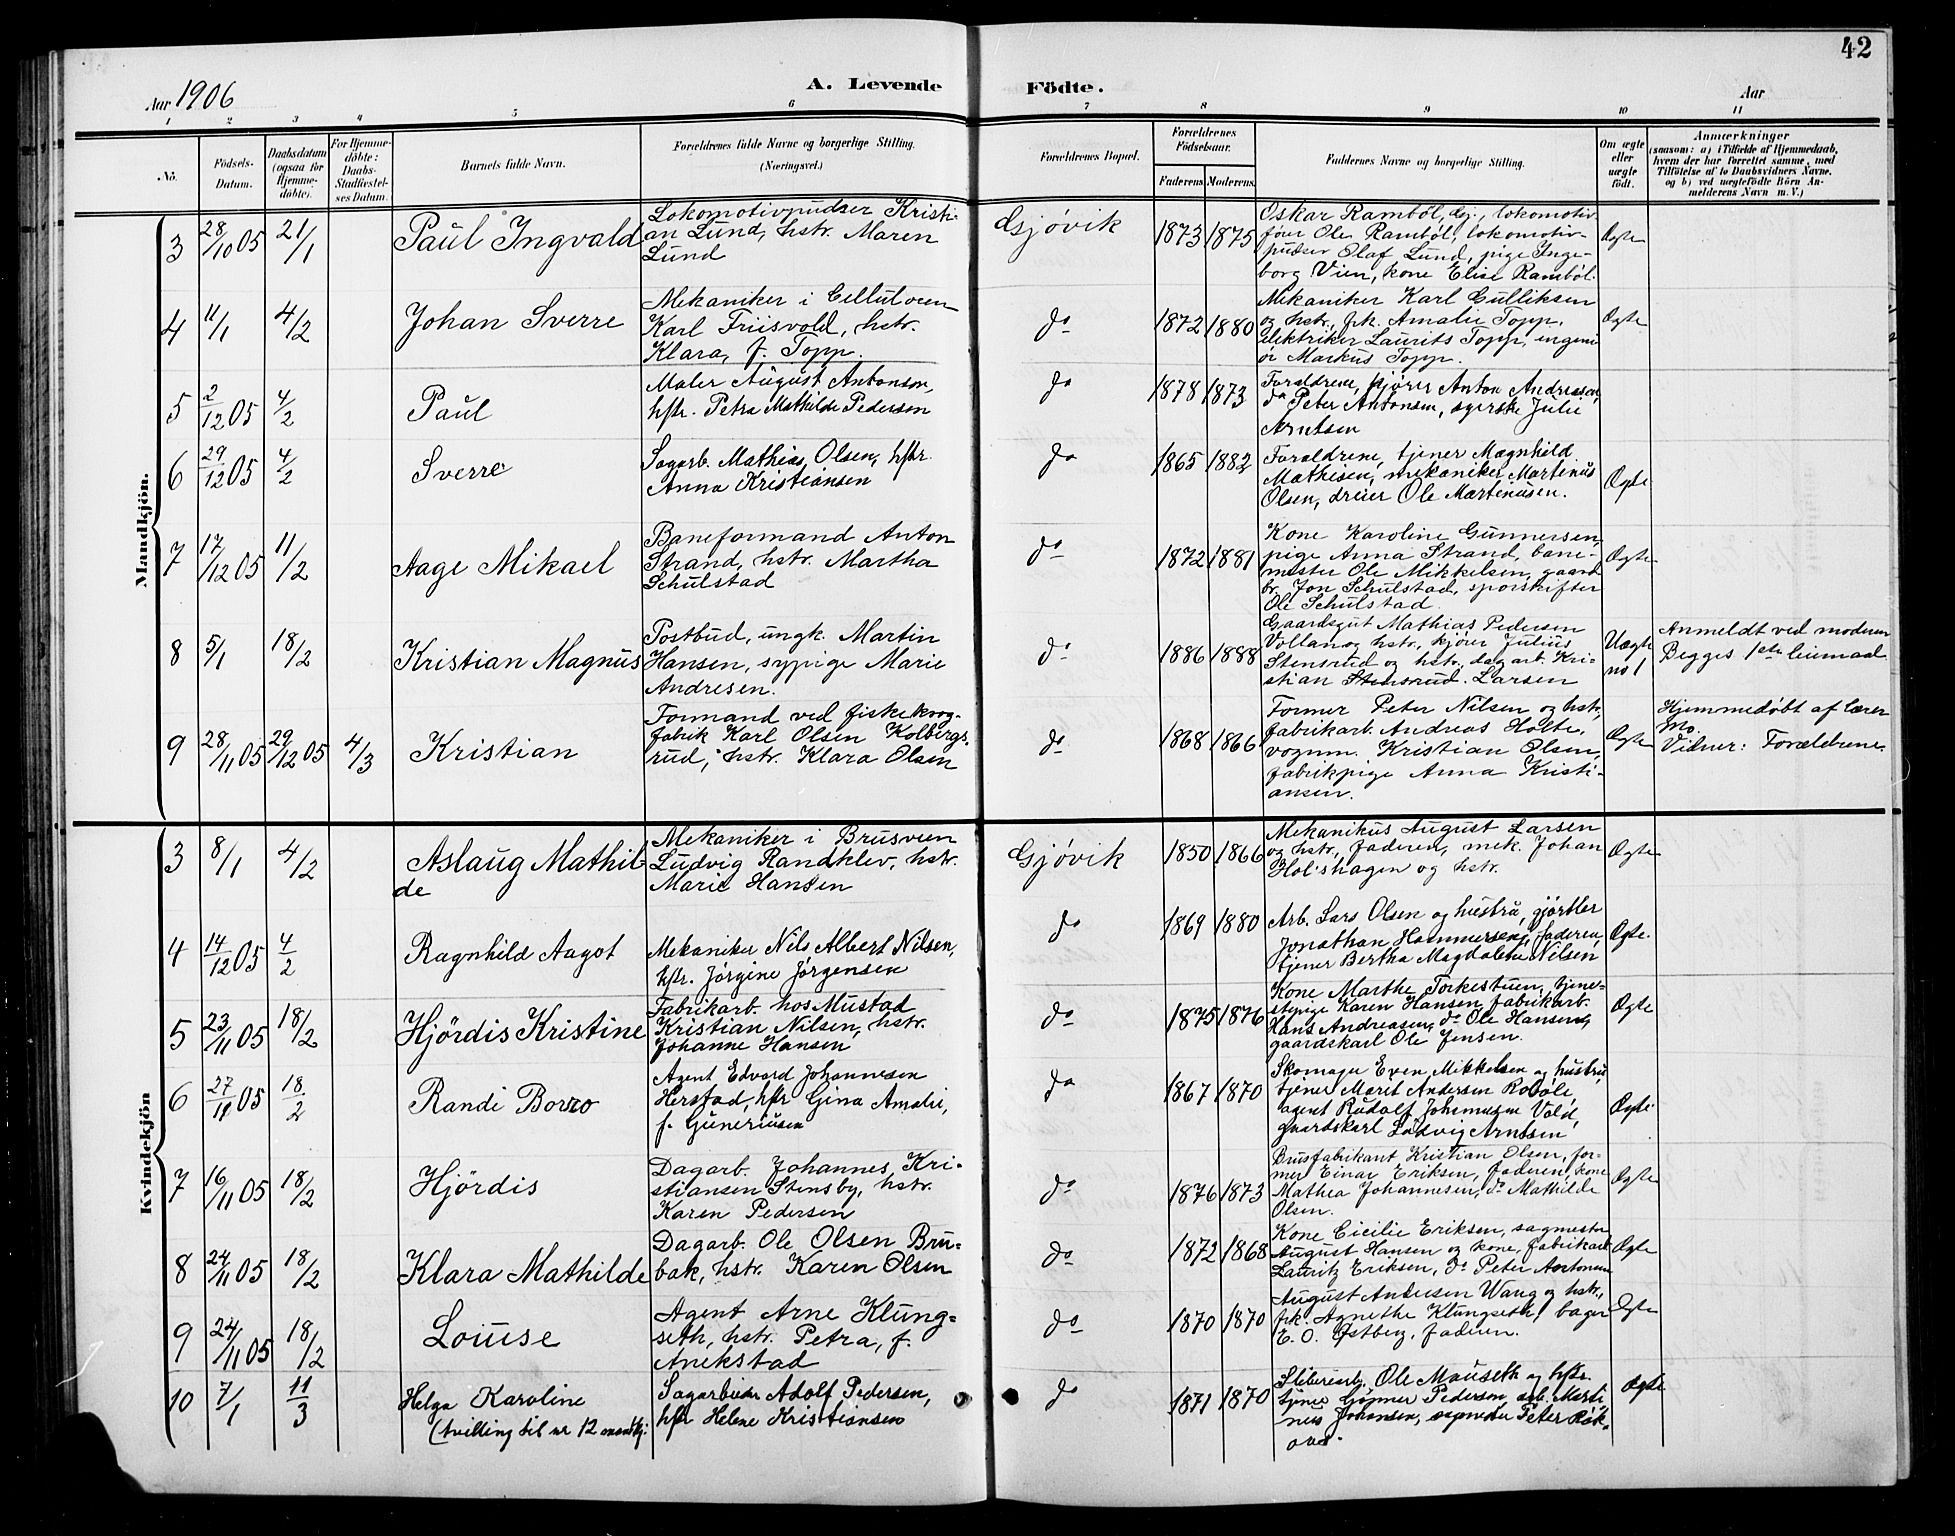 42
Aar 1906
A. Levende Födte.
Aar
1 2 3 4 5 6 7 8 9 10 11
No.
Födsels-Datum.
Daabsdatum (ogsaa for Hjemme-döbte).
For Hjemme-döbte: Daabs-Stadfæstel-ses Datum.
Barnets fulde Navn.
Forældrenes fulde Navne og borgerlige Stilling. (Næringsvei.)
Forældrenes Bopæl.
Forældrenes Födselsaar.
Faderens. Moderens.
Faddernes Navne og borgerlige Stilling.
Om ægte eller uægte födt.
Anmærkninger
(saasom: a) i Tilfælde af Hjemmedaab, hvem der har forrettet samme, med Tilföielse af to Daabsvidners Navne, og b) ved uægtefödte Börn An-melderens Navn m. V.)
Mandkjön.
3 28/10 05 21/1 Paul Ingvald
Lokomotivpudser Kristi-
an Lund, hstr. Maren
Lund
Gjövik 1873 1875
Oskar Ramböl, Gj., lokomotiv-
förer Ole Ramböl, lokomotiv-
pudser Olaf Lund, pige Inge-
borg Vien, kone Elise Ramböl.
Ægte
4 11/1 4/2 Johan Sverre
Mekaniker i Cellulosen
Karl Friisvold, hstr.
Klara, f. Topp.
do 1872 1880
Mekaniker Karl Gulliksen
og hstr., frk. Amalie Topp,
elektriker Laurits Topp, ingeni-
ör Markus Topp.
Ægte
5 2/12 05 4/2 Paul
Maler August Antonsen,
hstr. Petra Mathilde Pedersen
do 1878 1873
Forældrene, kjörer Anton Andreassen,
do Peter Antonsen, syerske Julie
Arntsen
6 29/12 05 4/2 Sverre
Sagarb. Mathias Olsen, hstr.
Anna Kristiansen
do 1865 1882
Forældrene, tjener Magnhild
Mathisen, mekaniker Martenus
Olsen, dreier Ole Martenusen.
Ægte
7 17/12 05 11/2 Aage Mikael
Baneformand Anton
Strand, hstr. Martha
Schulstad
do 1872 1881
Kone Karoline Gunnersen,
pige Anna Strand, bane-
mester Ole Mikkelsen, gaard
br. Jon Schulstad, sporskifter
Ole Schulstad.
Ægte
8 5/1 18/2 Kristian Magnus
Postbud, ungk. Martin
Hansen, sypige Marie
Andresen.
do 1886 1888
Gaardsgut Mathias Pedersen
Vollan og hstr., kjörer Julius
Stensrud og hstr., dagarb. Kri-
stian Stensrud. Larsen
Uægte no 1
Anmeldt ved moderen
Begges 1ste leiermaal
9 28/11 05 29/12 05 4/3 Kristian
Formand ved fiskekrog-
fabrik Karl Olsen Kolbergs-
rud, hstr. Klara Olsen
do 1868 1866
Former Peter Nilsen og hstr,
fabrikarb. Andreas Holte,
vognm. Kristian Olsen,
fabrikpige Anna Kristi-
ansen.
Ægte
Hjemmedöbt af lærer
Mo.
Vidner: Forældrene.
Kvindekjön
3 8/1 4/2 Aslaug Mathil-
de
Mekaniker i Brusveen
Ludvig Randklev, hstr.
Marie Hansen
Gjövik 1850 1866
Mekanikus August Larsen
og hstr., faderen, mek. Johan
Holshagen og hstr.
Ægte
4 14/12 05 4/2 Ragnhild Aagot
Mekaniker Nils Albert Nilsen,
hstr. Jörgine Jörgensen
do 1869 1880
Arb. Lars Olsen og hustru, gjörtler
Jonathan Hammerseng, faderen,
tjener Bertha Magdalene Nilsen
Ægte.
5 23/11 05 18/2 Hjördis Kristine
Fabrikarb. hos Mustad
Kristian Nilsen, hstr.
Johanne Hansen
do 1875 1876
Kone Marthe Torkestuen, tjene-
stepige Karen Hansen, fabrikarb.
Hans Andreasen, do Ole Hansen,
gaardskarl Ole Jensen.
Ægte
6 27/11 05 18/2 Randi Borro
Agent Edvard Johannesen
Herstad, hstr Gina Amalie,
f. Guneriusen
do 1867 1870
Skomager Even Mikkelsen og hustru,
tjener Marit Andersen Roböle,
agent Rudolf Johannesen Vold,
gaardskarl Ludvig Arntsen
Ægte
7 16/11 05 18/2 Hjördis
Dagarb. Johannes Kri-
stiansen Stensby, hstr.
Karen Pedersen
do 1876 1873
Brusfabrikant Kristian Olsen, for-
mer Einar Eriksen, faderen, kone
Mathea Johannesen, do Mathilde
Olsen.
Ægte
8 24/11 05 18/2 Klara Mathilde
Dagarb. Ole Olsen Bru-
bak, hstr. Karen Olsen
do 1872 1868
Kone Cicilie Eriksen, sagmester
August Hansen og kone, fabrikarb.
Lauritz Eriksen, do Peter Antonsen
Ægte
9 24/11 05 18/2 Louise
Agent Arne Klung-
seth, hstr. Petra, f.
Anekstad
do 1870 1870
August Andersen Wang og hstr.,
frk. Agnethe Klungseth, bager
E. O. Østberg, faderen.
Ægte
10 7/1 11/3 Helga Karoline
(tvilling til nr 12 mandkj:
Sagarbeider Adolf Pedersen,
hstr Helene Kristiansen
do 1871 1870
Sliberiarb. Ole Mauseth og hstr.
tjener Gunner Pedersen, arb. Marti-
nus Johansen, sagmester Peter
Ægte